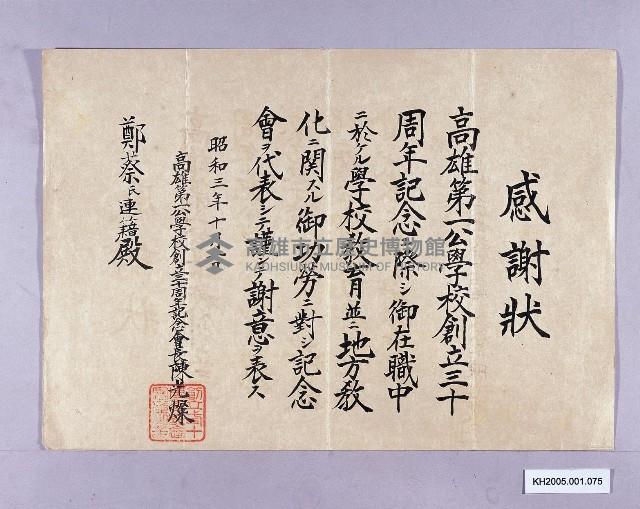 感謝狀
高雄第一公學校創立三十
周年記念ニ際シ御在職中
ニ於ケル學校敎育並ニ地方敎
化ニ関スル御功労ニ對シ記念
會ヲ代表シテ謹テ謝意ヲ表ス
昭和三年十月
高雄第一公學校創立三十周年記念會長陳光燦
鄭蔡氏連籍殿
高雄市立歷史博物館
KAOHSIUNG MUSEUM OF HISTORY
KH2005.001.075